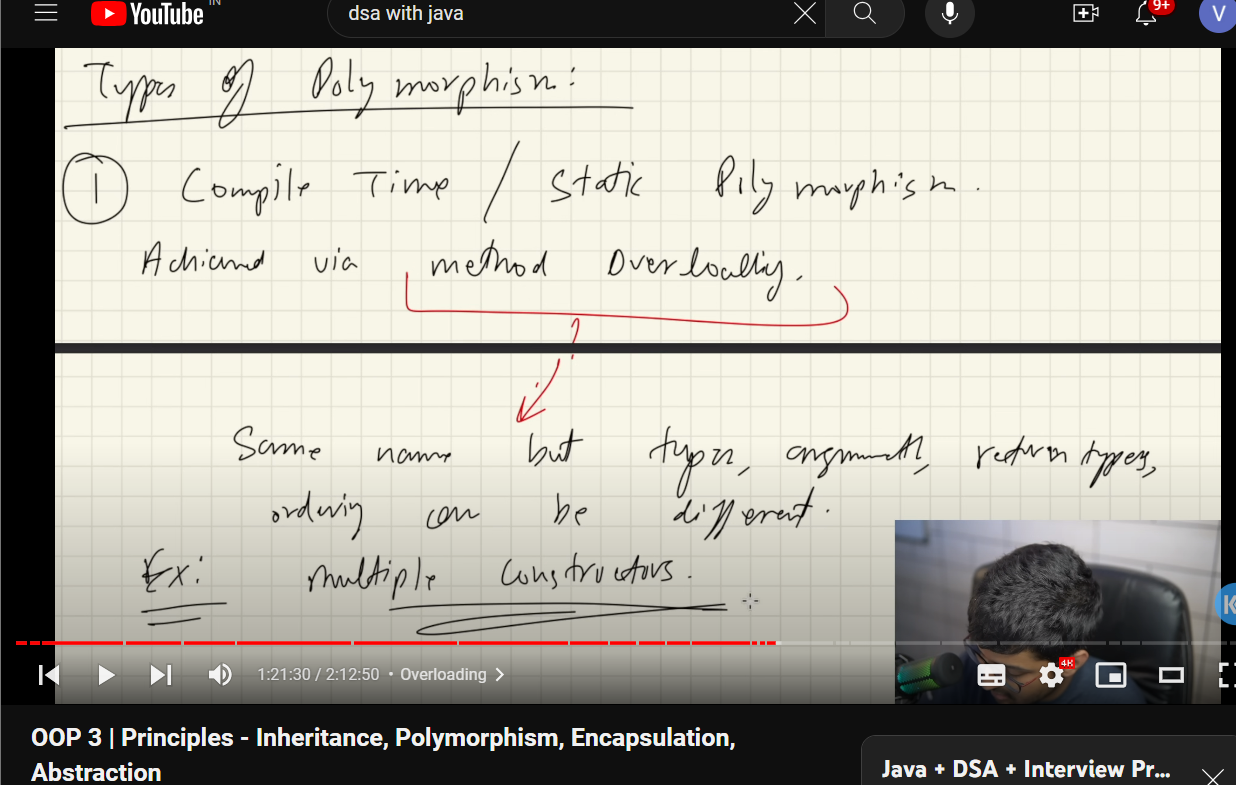 YouTube IN
dsa with java
9+
V
Types of Polymorphism:
1 Compile Time / Static Polymorphism.
Achieved via method Overloading.
Same name but types, arguments, return types,
ordering can be different.
Ex: multiple constructors.
K
1:21:30 / 2:12:50 • Overloading
4K
OOP 3 | Principles - Inheritance, Polymorphism, Encapsulation,
Abstraction
Java + DSA + Interview Pr...